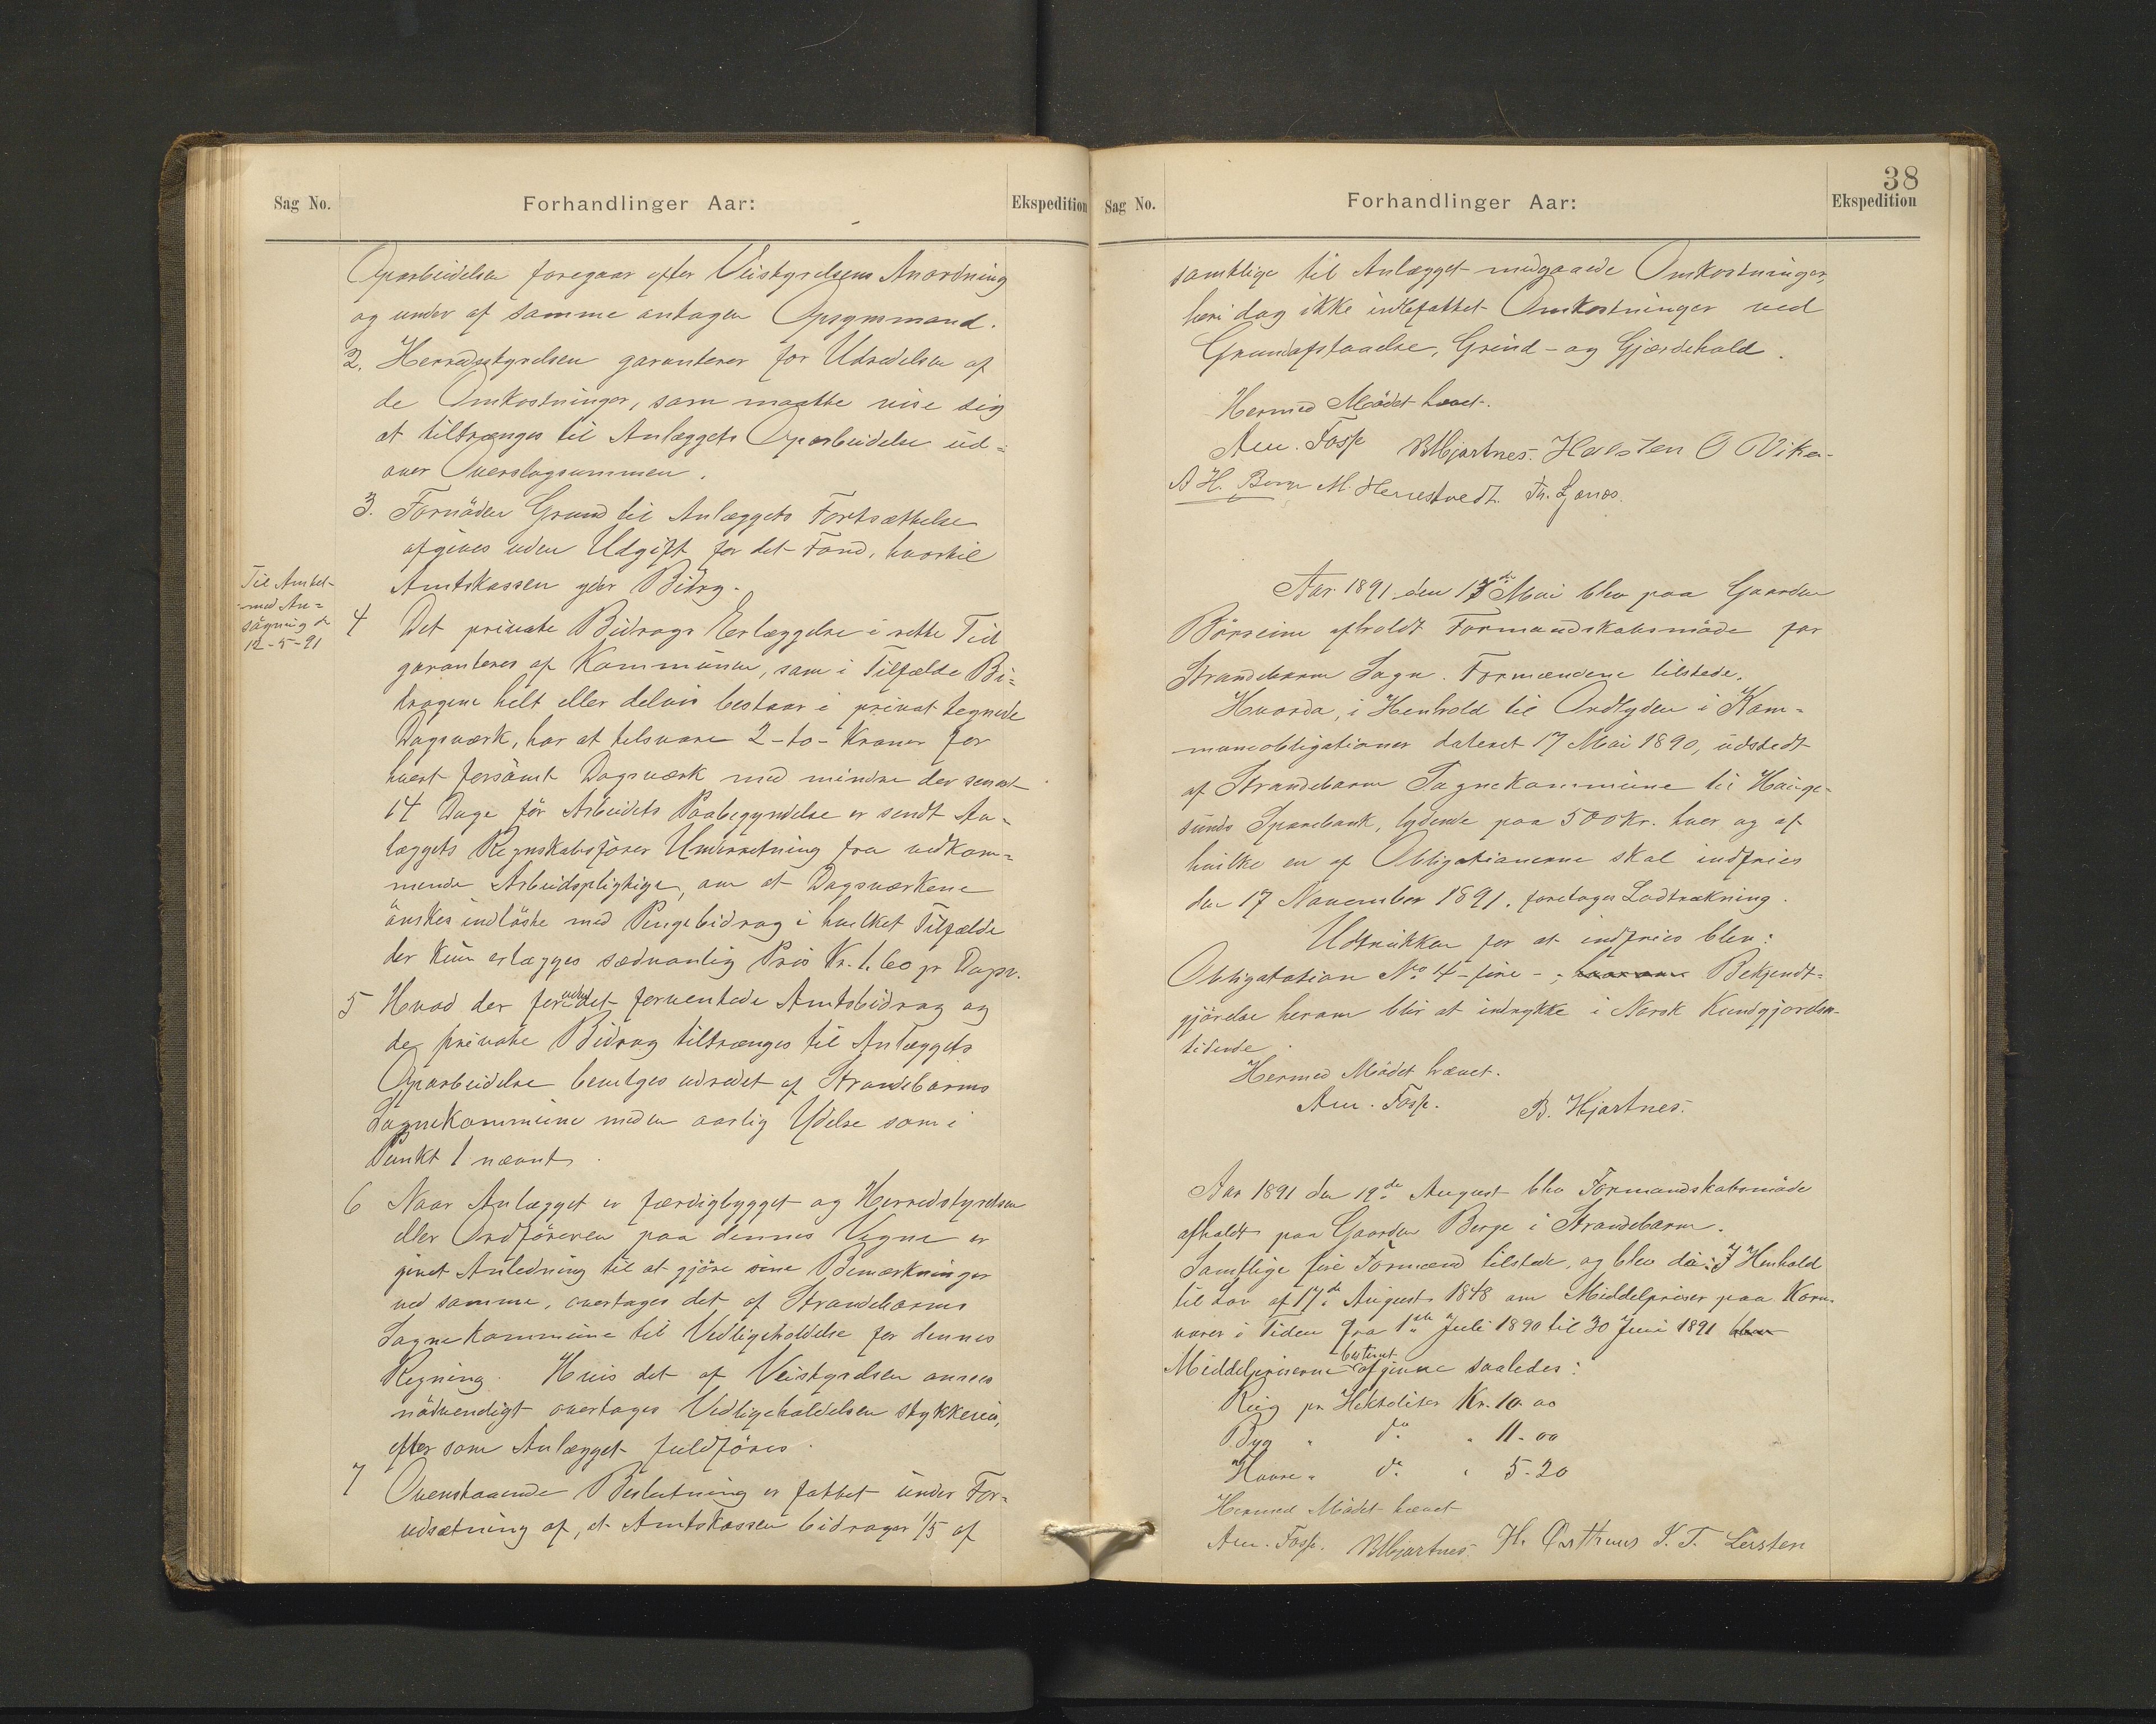 Sag No.
Forhandlinger Aar:
Ekspedition
Oparbeidelsen foregaar efter Veistyrelsens Anordning
og under af samme antagen Opsynsmand.
2. Herredsstyrelsen garanterer for Udredelsen af
de Omkostninger, som maatte vise sig
at tiltrænges til Anlæggets Oparbeidelse ud-
over Overslagsummen.
3. Fornöden Grund til Anlæggets Fortsættelse
afgives uden Udgift for det Fond, hvortil
Amtskassen yder Bidrag.
Til Amtet
med An=
sögning d
12-5-91
4 Det private Bidrags Erlæggelse i rette Tid
garanteres af Kommunen, som i Tilfælde Bi=
dragene helt eller delvis bestaar i privat tegnede
Dagsværk, har at tilsvare 2-to-Kroner for
hvert forsömt Dagsværk med mindre der senest
14 Dage för Arbeidets Paabegyndelse er sendt An-
læggets Regnskabsförer Underretning fra vedkom=
mende Arbeidspligtige, om at Dagsværkene
önskes indlöste med Pengebidrag i hvilket Tilfælde
der kun erlægges sædvanlig Pris Kr. 1.60 pr Dagsv.
5 Hvad der foruden det forventede Amtsbidrag og
de private Bidrag tiltrænges til Anlæggets
Oparbeidelse bevilges udredet af Strandebarms
Sognekommune med en aarlig Ydelse som i
Punkt 1 nævnt.
6 Naar Anlægget er færdigbygget og Herredstyrelsen
eller Ordföreren paa dennes Vegne er
givet Anledning til at gjöre sine Bemærkninger
ved samme, overtages det af Strandebarms
Sognekommune til Vedligeholdelse for dennes
Regning. Hvis det af Veistyrelsen ansees
nödvendigt overtages Vedligeholdelsen stykkevis,
efter som Anlægget fuldföres.
7 Ovenstaaende Beslutning er fattet under For=
udsætning af, at Amtskassen bidrager 1/5 af
38
Sag No.
Forhandlinger Aar:
Ekspedition
samtlige til Anlægget medgaaede Omkostninger,
heri dog ikke indbefattet Omkostninger ved
Grundafstaaelse, Grind- og Gjærdehold.
Hermed Mödet hævet.
Am. Fosse BHjartnes. Halsten O Viken
A H. Berge M. Herrestvedt. Th. Lznos.
Aar 1891 den 13de Mai blev paa Gaarden
Börseim afholdt Formandskabsmöde for
Strandebarm Sogn. Formændene tilstede.
Hvorda, i Henhold til Ordlyden i Kom=
muneobligationer dateret 17 Mai 1890, udstedt
af Strandebarm Sognekommune til Hauge-
sunds Sparebank, lydende paa 500 Kr. hver og af
hvilke en af Obligationerne skal indfries
den 17 November 1891, foretoges Lodtrækning.
Udtrukken for at indfries blev:
Obligatation No 4 - fire - ; Bekjendt=
gjörelse herom blir at indrykke i Norsk Kundgjörelses-
tidende.
Hermed Mödet hævet.
Am. Fosse. B. Hjartnes.
Aar 1891 den 19de August blev Formandskabsmöde
afholdt paa Gaarden Berge i Strandebarm.
Samtlige fire Formænd tilstede, og blev da: I Henhold
til Lov af 17de August 1848 om Middelpriser paa Korn-
varer i Tiden fra 1ste Juli 1890 til 30 Juni 1891 blev
Middelpriserne bestemt afgivne saaledes:
Rug pr. Hektoliter Kr. 10.00
Byg " do " 11-00
Havre " do " 5-20
Hermed Mödet hævet
Am. Fosse. BHjartnes. H. Østhuus K. T. Lersten